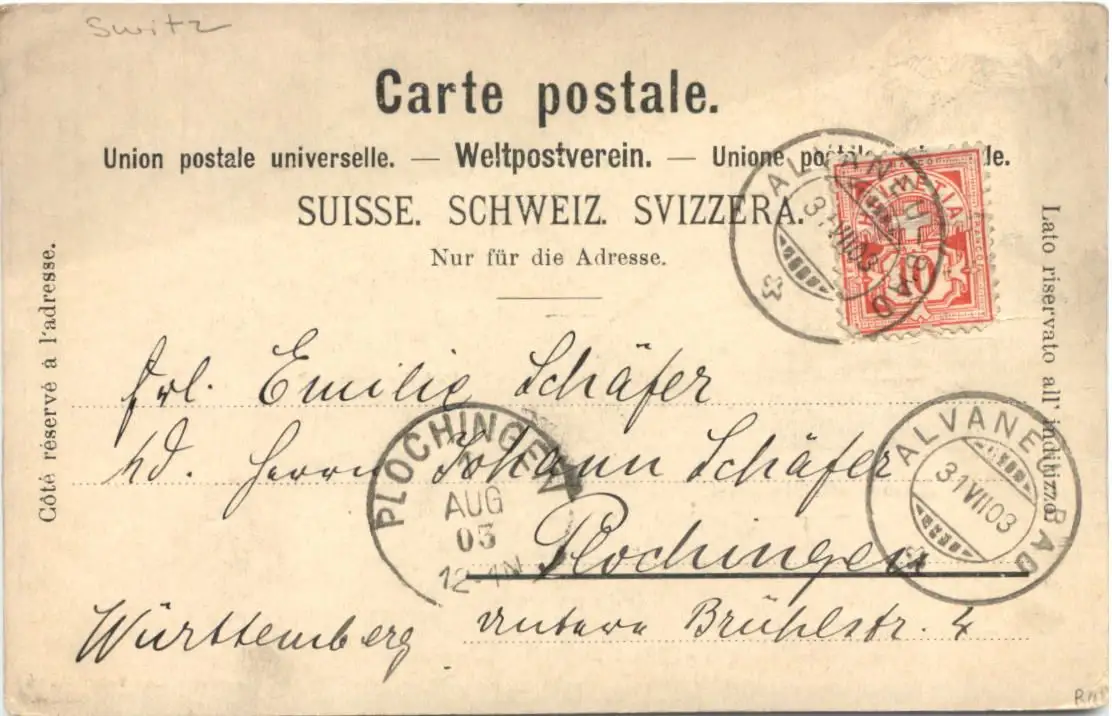 Switz
Carte postale.
Union postale universelle. — Weltpostverein. — Unione postale universale.
SUISSE. SCHWEIZ. SVIZZERA.
Nur für die Adresse.
Côté réservé à l'adresse.
Lato riservato all' indirizzo
ALVANEU-BAD
31 VII 03
HELVETIA
FRANCO
10
Frl. Emilie Schäfer
Ad. Herrn Johann Schäfer
Plochingen
Württemberg
untere Brühlstr. 4
PLOCHINGEN
1
AUG
03
12-1N
ALVANEU BAD
31 VII 03